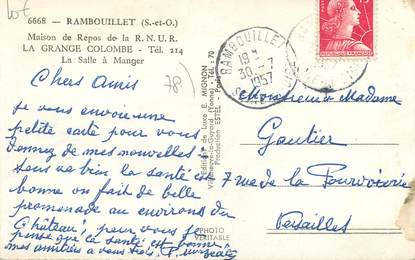 Lot
6668 - RAMBOUILLET (S.-et-O.)
Maison de Repos de la R.N.U.R.
LA GRANGE COLOMBE - Tél. 214
La Salle à Manger
78)
Chers Amis
Je vous envoie une
petite carte pour vous
donnez de mes nouvelles.
Tous va bien la santé est
bonne on fait de belle
promenade au environs du
Château, pour vous je
pense que la santé est bonne
mes amitiés a vous trois,
Edition de Luxe E. MIGNON
Production ESTEL
PHOTO
VÉRITABLE
RAMBOUILLET
30-7
1957
Monsieur Madame
Gautier
7 rue de la Pourvoierie
Versailles